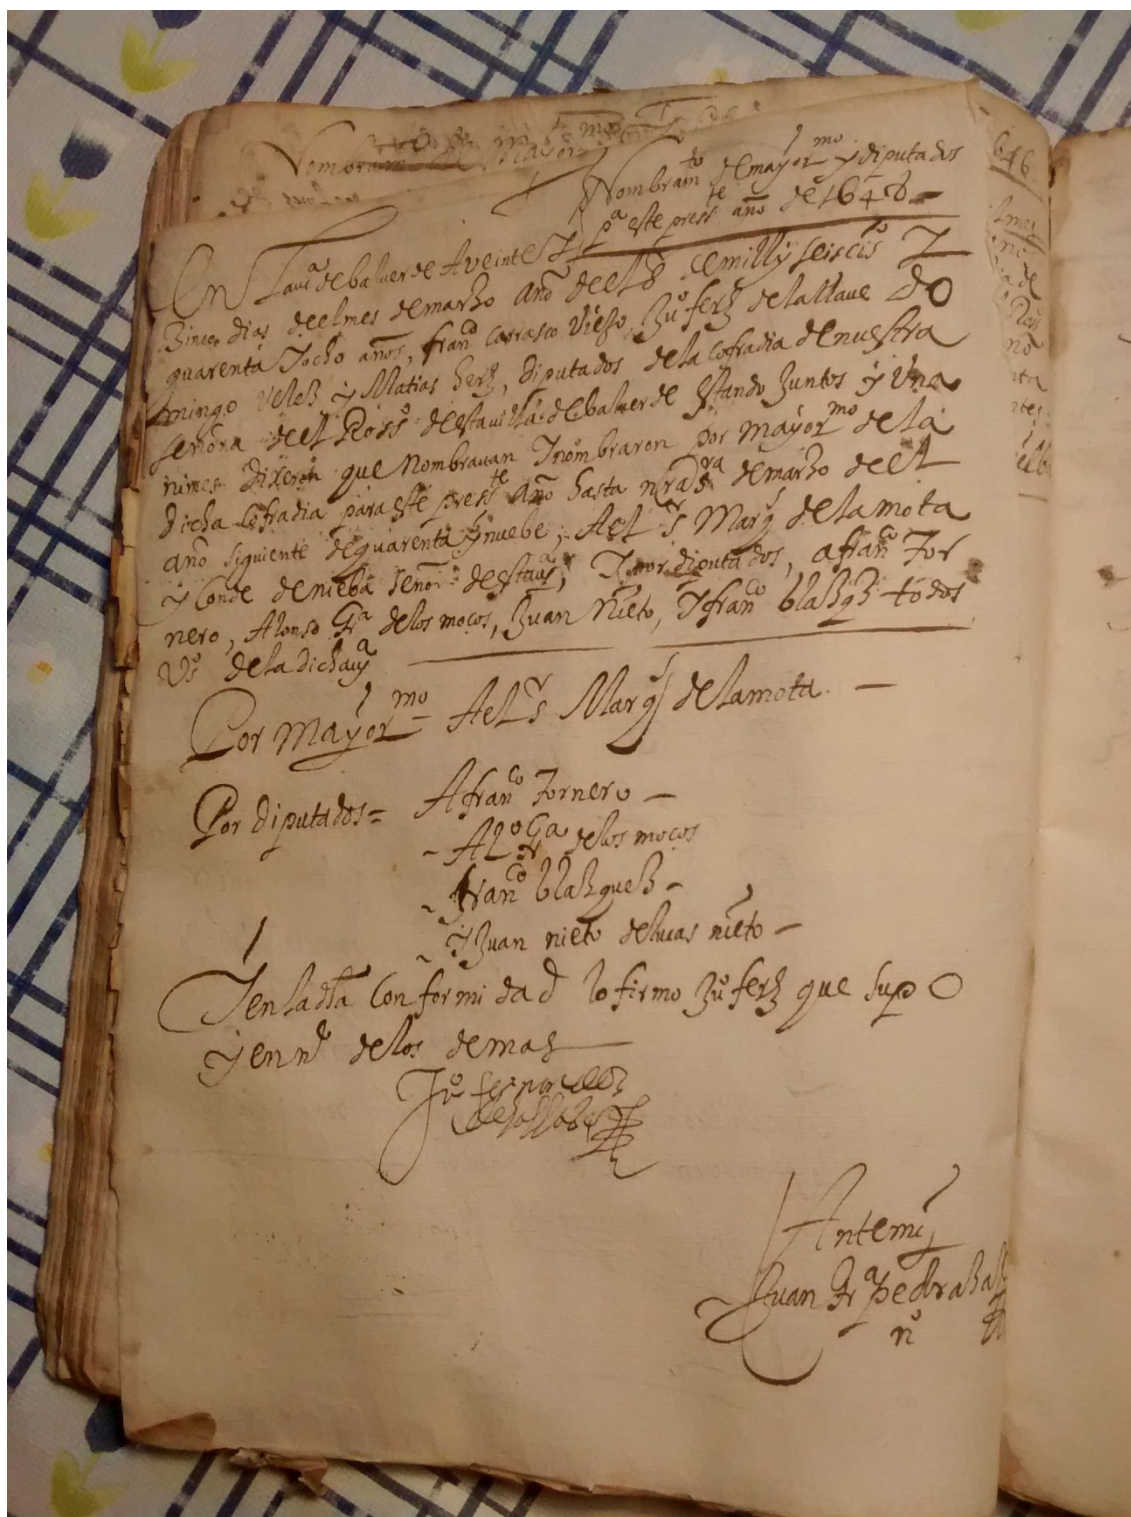 Nombram
Nombramto de mayormo y diputados
pa este presste año de 1648
En la uia de baluerde A veinte I
Zinco dias deel mes de marzo Año deel sr de mill y seiscis I
quarenta Iocho años, franco Carrasco Viejo, Juo ferz de la llaue DO
mingo Velez y Matias herz, diputados de la cofradia de nuestra
señora deel Ross° de esta uilla de baluerde estando Juntos y Vna
nimes dixeron que Nombrauan Inombraron por mayormo de la
dicha cofradia para este presste Año hasta nra sra de marzo deel
año siguiente de quarenta y nuebe, Ael sr Marq de la mota
y Conde de nieba señor de esta ua, I por diputados, a franco For
nero, Alonso Ga de los moços, Juan Nieto, I franco blazqz todos
Vs° de la dicha ua
Por mayormo = Ael sr Marq de la mota. —
Por diputados = A franco Fornero —
- Al° Ga de los moços
- franco blazquez -
- I Juan nieto de lucas nieto —
I en la dha Conformidad lo firmo Ju° ferz que supo
y en ne de los demas
Ju°
de la llabe
Ante mi
Juan Ga Pedraza
n°
646